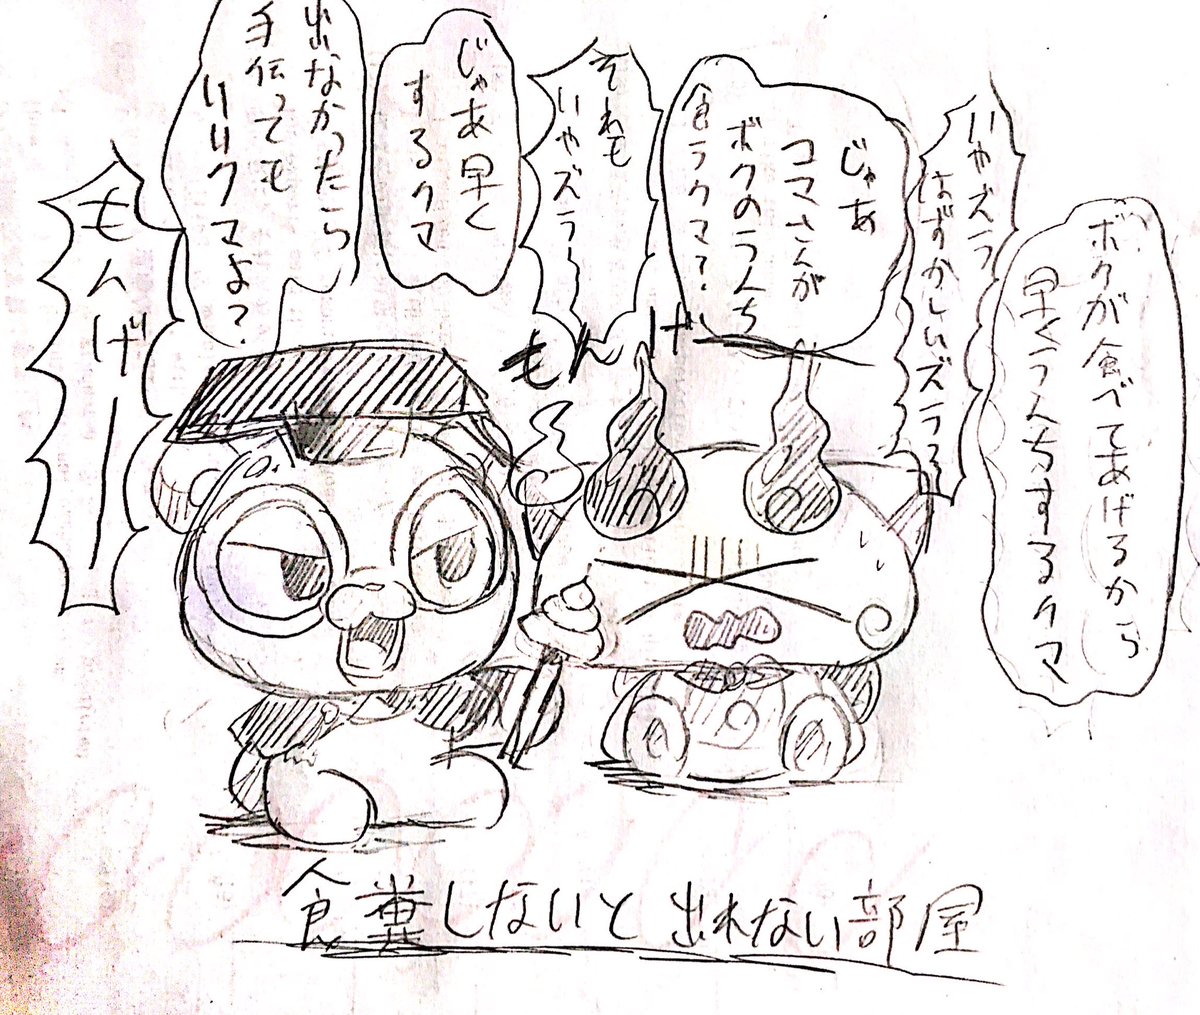 ボクが食べてあげるから
早くうんちするクマ
いやズラ
はずかしいズラ〜
じゃあ
コマさんが
ボクのうんち
食うクマ?
それも
いやズラ〜
もんげ
じゃあ早く
するクマ
出なかったら
手伝っても
いいクマよ?
もんげー
食糞しないと出れない部屋